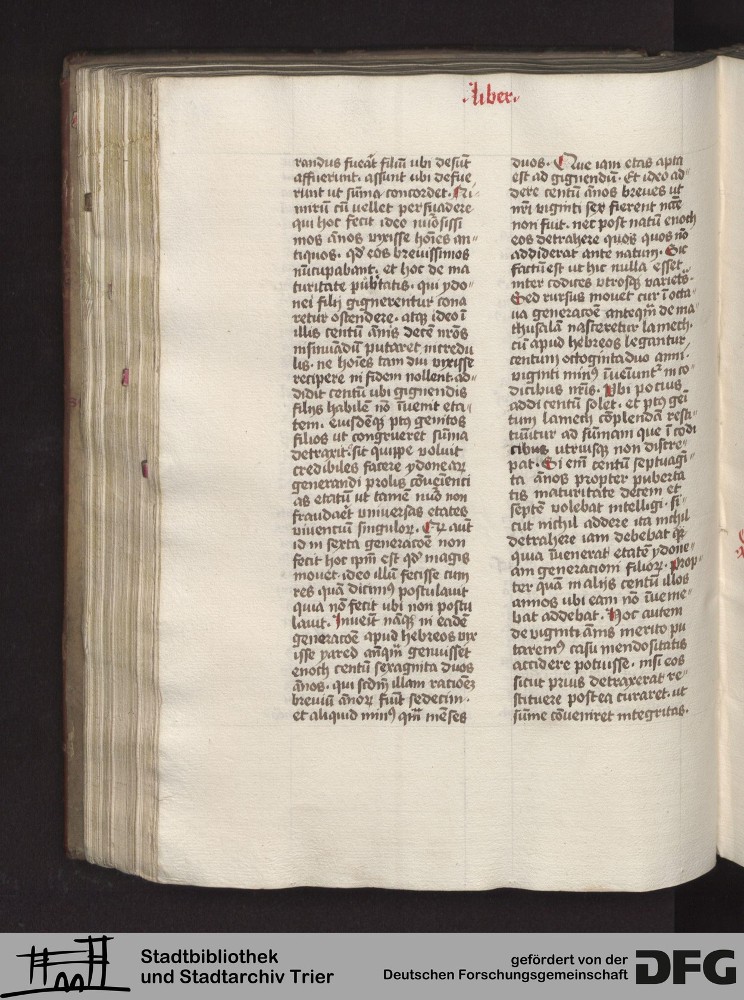 ·liber·
randus fuerāt filiū ubi desūt
affuerint. assint ubi defue
runt ut sūma concordet. Ni-
mirū cū vellet persuadere
qui hoc fecit ideo nūosissi
mos ānos vixisse hoīes an-
tiquos. qd' eos brevissimos
nūcupabant. et hoc de ma
turitate pub'tatis. qui ydo-
nei filij gignerentur cona
retur ostendere. atq; ideo ī
illis centū ānis decē nr̄os
insinuādū putaret incredu
lis. ne hoīes tam diu vixisse
recipere in fidem nollent. ad-
didit centū ubi gignendis
filijs habilē nō īuenit eta-
tem. eiusdēq; pꝰ genitos
filios ut congrueret sūma
detraxit. sic quippe voluit
credibiles facere ydonearꝝ
generandi prolis cōueīenci
as etatū ut tamē nūo non
fraudaēt universas etates
viventiū singulorꝝ. Qꝫ aūt
id in sexta generacōe non
fecit hoc ipm̄ est qd' magis
movet. ideo illū fecisse cum
res quā dicimꝰ postulavit
quia nō fecit ubi non postu
lavit. Inveīt nāq; in eadē
generacōe apud hebreos vix
isse yared anq̄m genuisset
enoch centū sexaginta duos
ānos. qui scdm̄ illam racioēꝫ
breviū ānorꝝ fiūt sedecim.
et aliquid minꝰ q̄m mēses
duos. Que iam etas apta
est ad gignendū. Et ideo ad-
dere centū ānos breves ut
nr̄i viginti sex fierent nc̄cē
non fuit. nec post natū enoch
eos detrahere quos quos nō
addiderat ante natum. Sic
factū est ut hic nulla esset
inter codices utrosq; varietˢ.
Sed rursus movet cur ī octa-
va generacōe anteq̄m de ma-
thusalā nasceretur lamech.
cū apud hebreos legantur
centum octogintaduo anni.
viginti minꝰ īueiūnt' in co-
dicibus nr̄is. Ubi pocius
addi centū solet. et pꝰ geī
tum lamech cōplendā resti-
tuūtur ad sūmam que ī codi
cibus utriusq; non discre-
pat. Si em̄ centū septuagī-
ta ānos propter puberta
tis maturitate decem et
septē volebat intelligi. si-
cut nichil addere ita nichil
detrahere iam debebat q̄ꝫ
quia īuenerat etatē ydone-
am generacioni filiorꝝ. prop-
ter quā in alijs centū illos
annos ubi eam nō īuenie-
bat addebat. Hoc autem
de viginti ānis merito pu
taremꝰ casu mendositatis
accidere potuisse. nisi eos
sicut prius detraxerat re-
stituere postea curaret. ut
sūme cōveniret integritas.
Stadtbibliothek
und Stadtarchiv Trier
gefördert von der
Deutschen Forschungsgemeinschaft
DFG